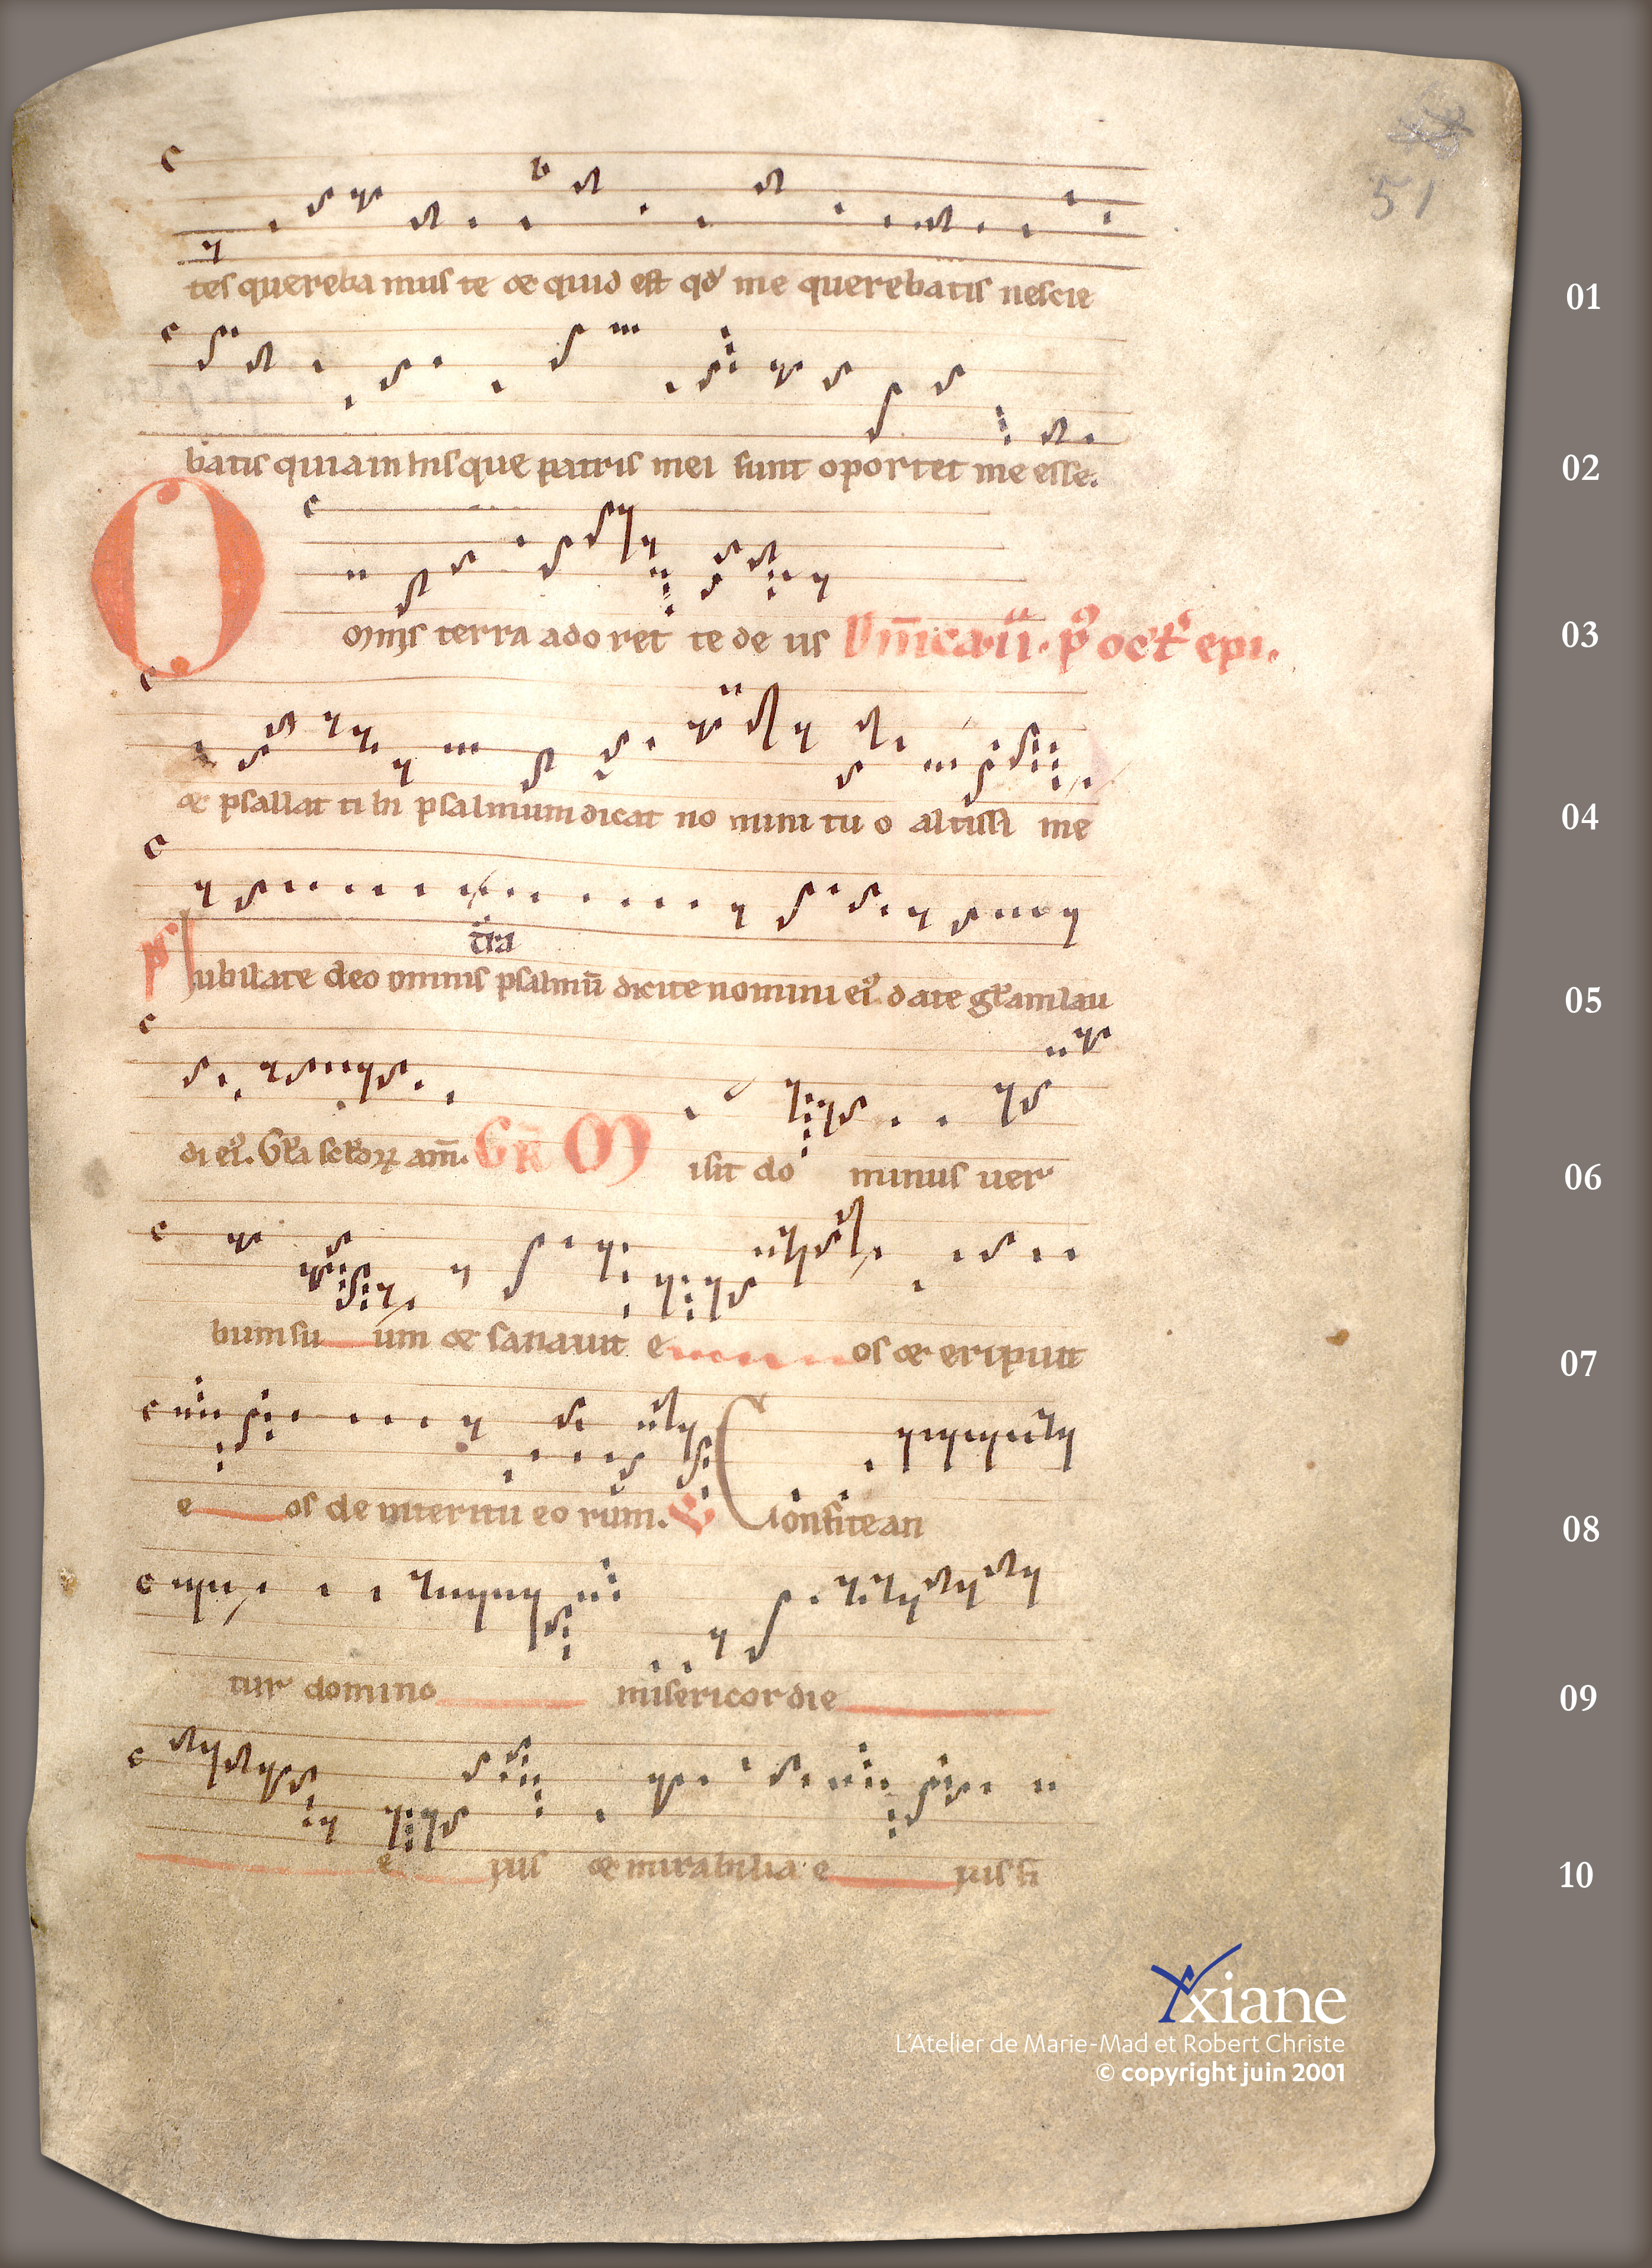 51
tes quereba mus te & quid est qd me querebatis nescie
01
batis quia in hiis que patris mei sunt oportet me esse.
02
Omnis terra adoret te de us Dnica .ii. p oct epi.
03
& psallat ti bi psalmum dicat no mini tu o altissi me
04
tra
ps Iubilate deo omnis psalmū dicite nomini ei date gram lau
05
di ei. Gra scdoꝝ am. Gr̄ Misit do minus uer
06
bum su um & sanauit e os & eripuit
07
e os de interitu eo rum. V Confitean
08
tur domino misericordie
09
e ius & mirabilia e ius fi
10
Yxiane
L'Atelier de Marie-Mad et Robert Christe
© copyright juin 2001